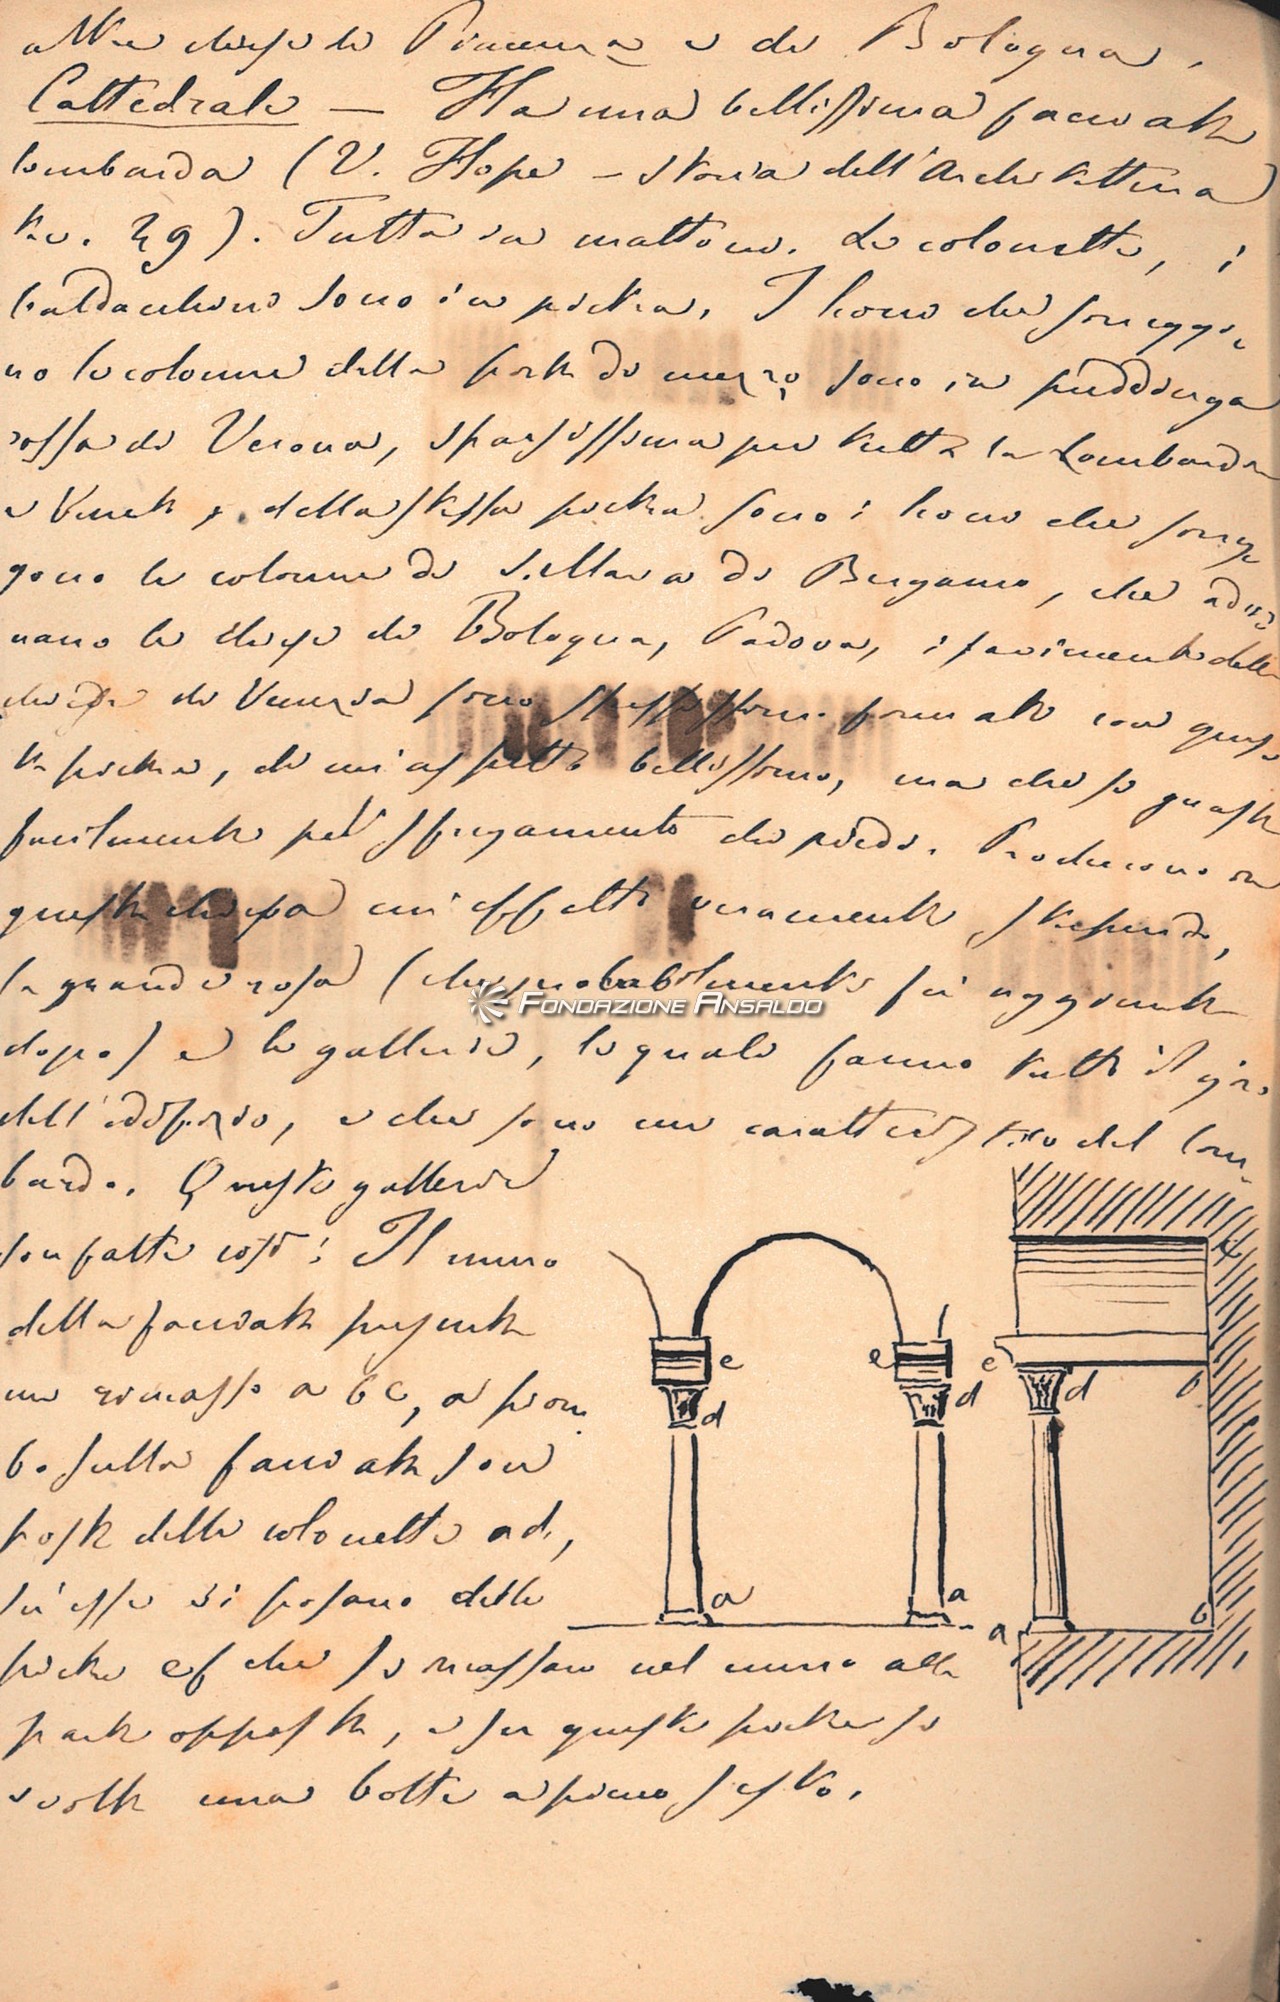 altre chiese di Piacenza e di Bologna.
Cattedrale — Ha una bellissima facciata
lombarda (V. Hope – storia dell'Architettura
tav. 29). Tutta in mattoni. Le colonette, i
baldachini sono in pietra. I leoni che sorreggo-
no le colonne della porta di mezzo sono in puddinga
rossa di Verona, sparsissima per tutta la Lombardia
e Veneto, della stessa pietra sono i leoni che sorreg
gono le colonne di S. Maria di Bergamo, che ador
nano le chiese di Bologna, Padova, i pavimenti delle
chiese di Venezia sono spessissimo formati con ques
ta pietra, di un'aspetto bellissimo, ma che si guasta
facilmente pel sfregamento dei piedi. Producono in
questa chiesa un'effetto veramente stupendo,
la grande rosa (che probabilmente fu aggiunta
dopo) e le gallerie, le quali fanno tutto il giro
dell'edifizio, e che sono un caratteristico del lom-
bardo. Queste gallerie
son fatte così: Il muro
della facciata presenta
un rincasso a b c, a piom
bo sulla facciata son
poste delle colonette ad,
su esse si posano delle
pietre ef che s'incassano nel muro alla
parte opposta, e su queste pietre si
svolta una botte a pieno sesto.
e e c
d d d b
a a a b
Fondazione Ansaldo